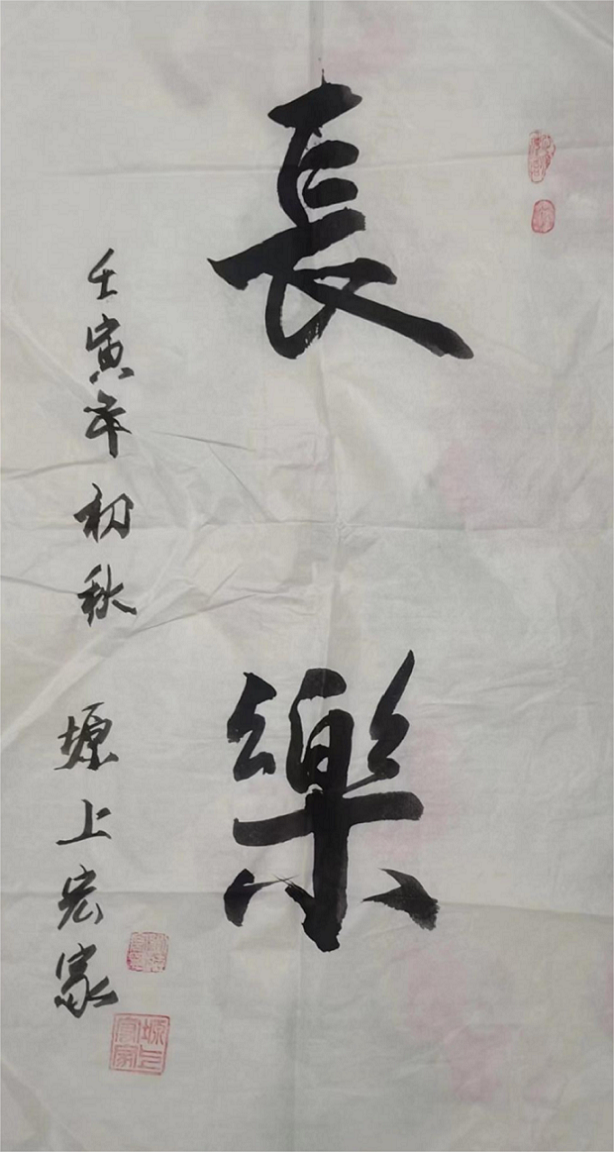 長樂
壬寅年初秋
塬上宏家
塬上宏家